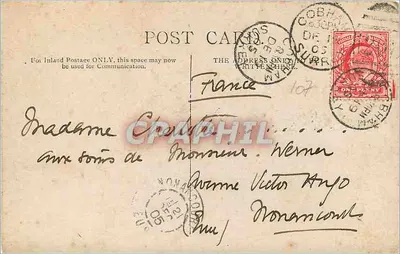 POST CARD
For Inland Postage ONLY, this space may now
be used for Communication.
THE ADDRESS ONLY
COBHAM
DE 1
05
SURREY
ONE PENNY
France
107
Madame
CPAPHIL
aux soins de Monsieur Werner
Avenue Victor Hugo
Nonancourt
(Eure)
12
05